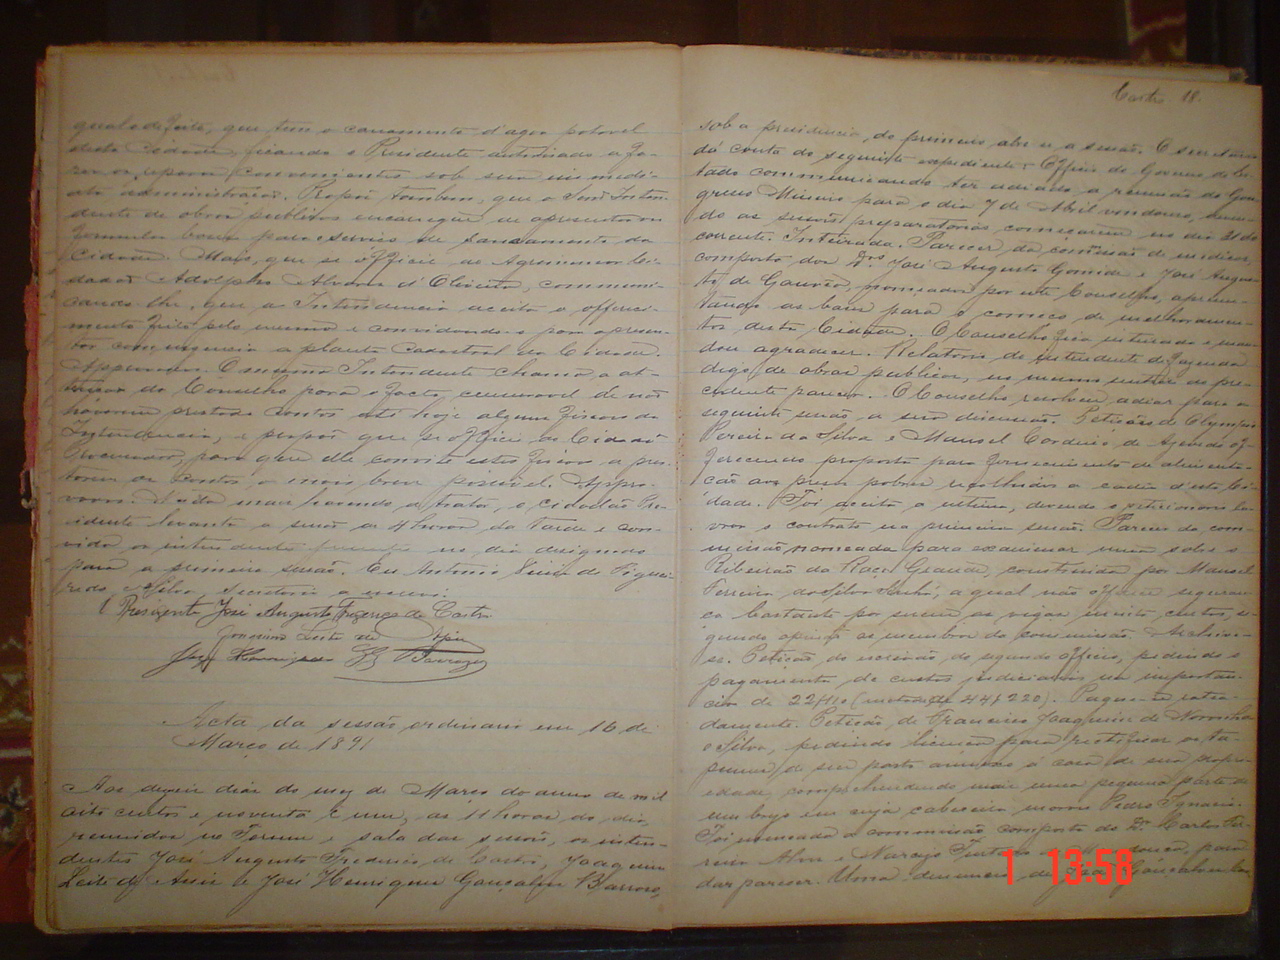 que tem o canamento d'agua potavel
desta Cidade, ficando o Presidente autorisado a fa-
convenientes sob sua immedi-
ata administração. Propoz tambem, que o Snr. Inten-
dente de obras publicas encarregue de apresentar ou
formular bases para o serviço de saneamento da
Cidade. Mais, que se officie ao Agrimensor Ci-
dadão Adolpho Alvares d'Oliveira, communi-
cando-lhe, que a Intendencia aceita o offereci-
mento feito pelo mesmo e convidando-o para apresen-
tar com urgencia a planta cadastral da Cidade.
Approvado. O mesmo Intendente chama a at-
tenção do Conselho para o facto, censuravel de não
haverem prestado contas até hoje alguns fiscaes da
Intendencia, e propõe que se officie ao Cidadão
Procurador, para que elle convite estes fiscaes a pres-
tarem as contas, o mais breve possivel. Appro-
vado. Nada mais havendo a tratar, o cidadão Pre-
sidente levanta a sessão as 4 horas da tarde e con-
vida os intendentes no dia designado
para a primeira sessão. Eu Antonio de Figuei-
redo e Silva Secretario a escrevi.
O Presidente José Augusto Frederico de Castro
Joaquim Leite de Assis
José Henriques Barrozo
Acta da sessão ordinaria em 16 de
Março de 1891
Aos deseseis dias do mez de Março do anno de mil
oito centos e noventa e um, as 11 horas do dia,
reunidos no Forum e sala das sessões, os inten-
dentes José Augusto Frederico de Castro, Joaquim
Leite de Assis e José Henrique Gonçalves Barroso,
Castro 18.
sob a presidencia do primeiro abre-se a sessão. O secretario
dá conta do seguinte expediente: Officio do Governo do Es-
tado communicando ter adiado a reunião do Con-
gresso Mineiro para o dia 7 de Abril vindouro, deven-
do as sessões preparatorias começarem no dia 21 do
corrente. Inteirado. Parecer da comissão de medicos,
composta dos Drs. José Augusto Gomide e José Augus-
to de nomeados por este Conselho, apresen-
tando as bases para o começo de melhoramen-
tos desta Cidade. O Conselho fica inteirado e man-
dou agradecer. Relatorio do intendente de fazenda
digo de obras publicas, no mesmo sentido do pre-
cedente parecer. O Conselho resolveu adiar para a
seguinte sessão a sua discussão. Petições de Olympio
Pereira da Silva e Manoel Cordeiro de of-
ferecendo proposta para fornecimento de alimenta-
ção aos presos pobres recolhidos a cadeia desta Ci-
dade. Foi aceita a ultima, devendo o peticionario la-
vrar o contrato na primeira sessão. Parecer da com-
missão nomeada para examinar sobre o
Ribeirão da Roça Grande, construida por Manoel
Ferreira da Silva a qual não offerece seguran-
ça bastante por serem as vigas muito curtas, se-
gundo opinião os membros da commissão. Archive-
se. Petição do escrivão do segundo officio, pedindo o
pagamento de custas judiciarias na importan-
cia de 22$110 (metade de 44$220). Pague-se
Petição de Francisco Joaquim de Noronha
e Silva, pedindo licença para rectificar os ta-
pumes de seu pasto annexo á casa de sua propri-
edade, comprehendendo mais uma pequena parte de
um beço em cuja cabeceira morou Pedro Ignacio.
Foi nomeada a commissão composta do Dr. Carlos Fer-
reira Alves e Narciso Furtado de Mendonça, para
dar parecer. Uma denuncia de João Gonçalves
1 13:58